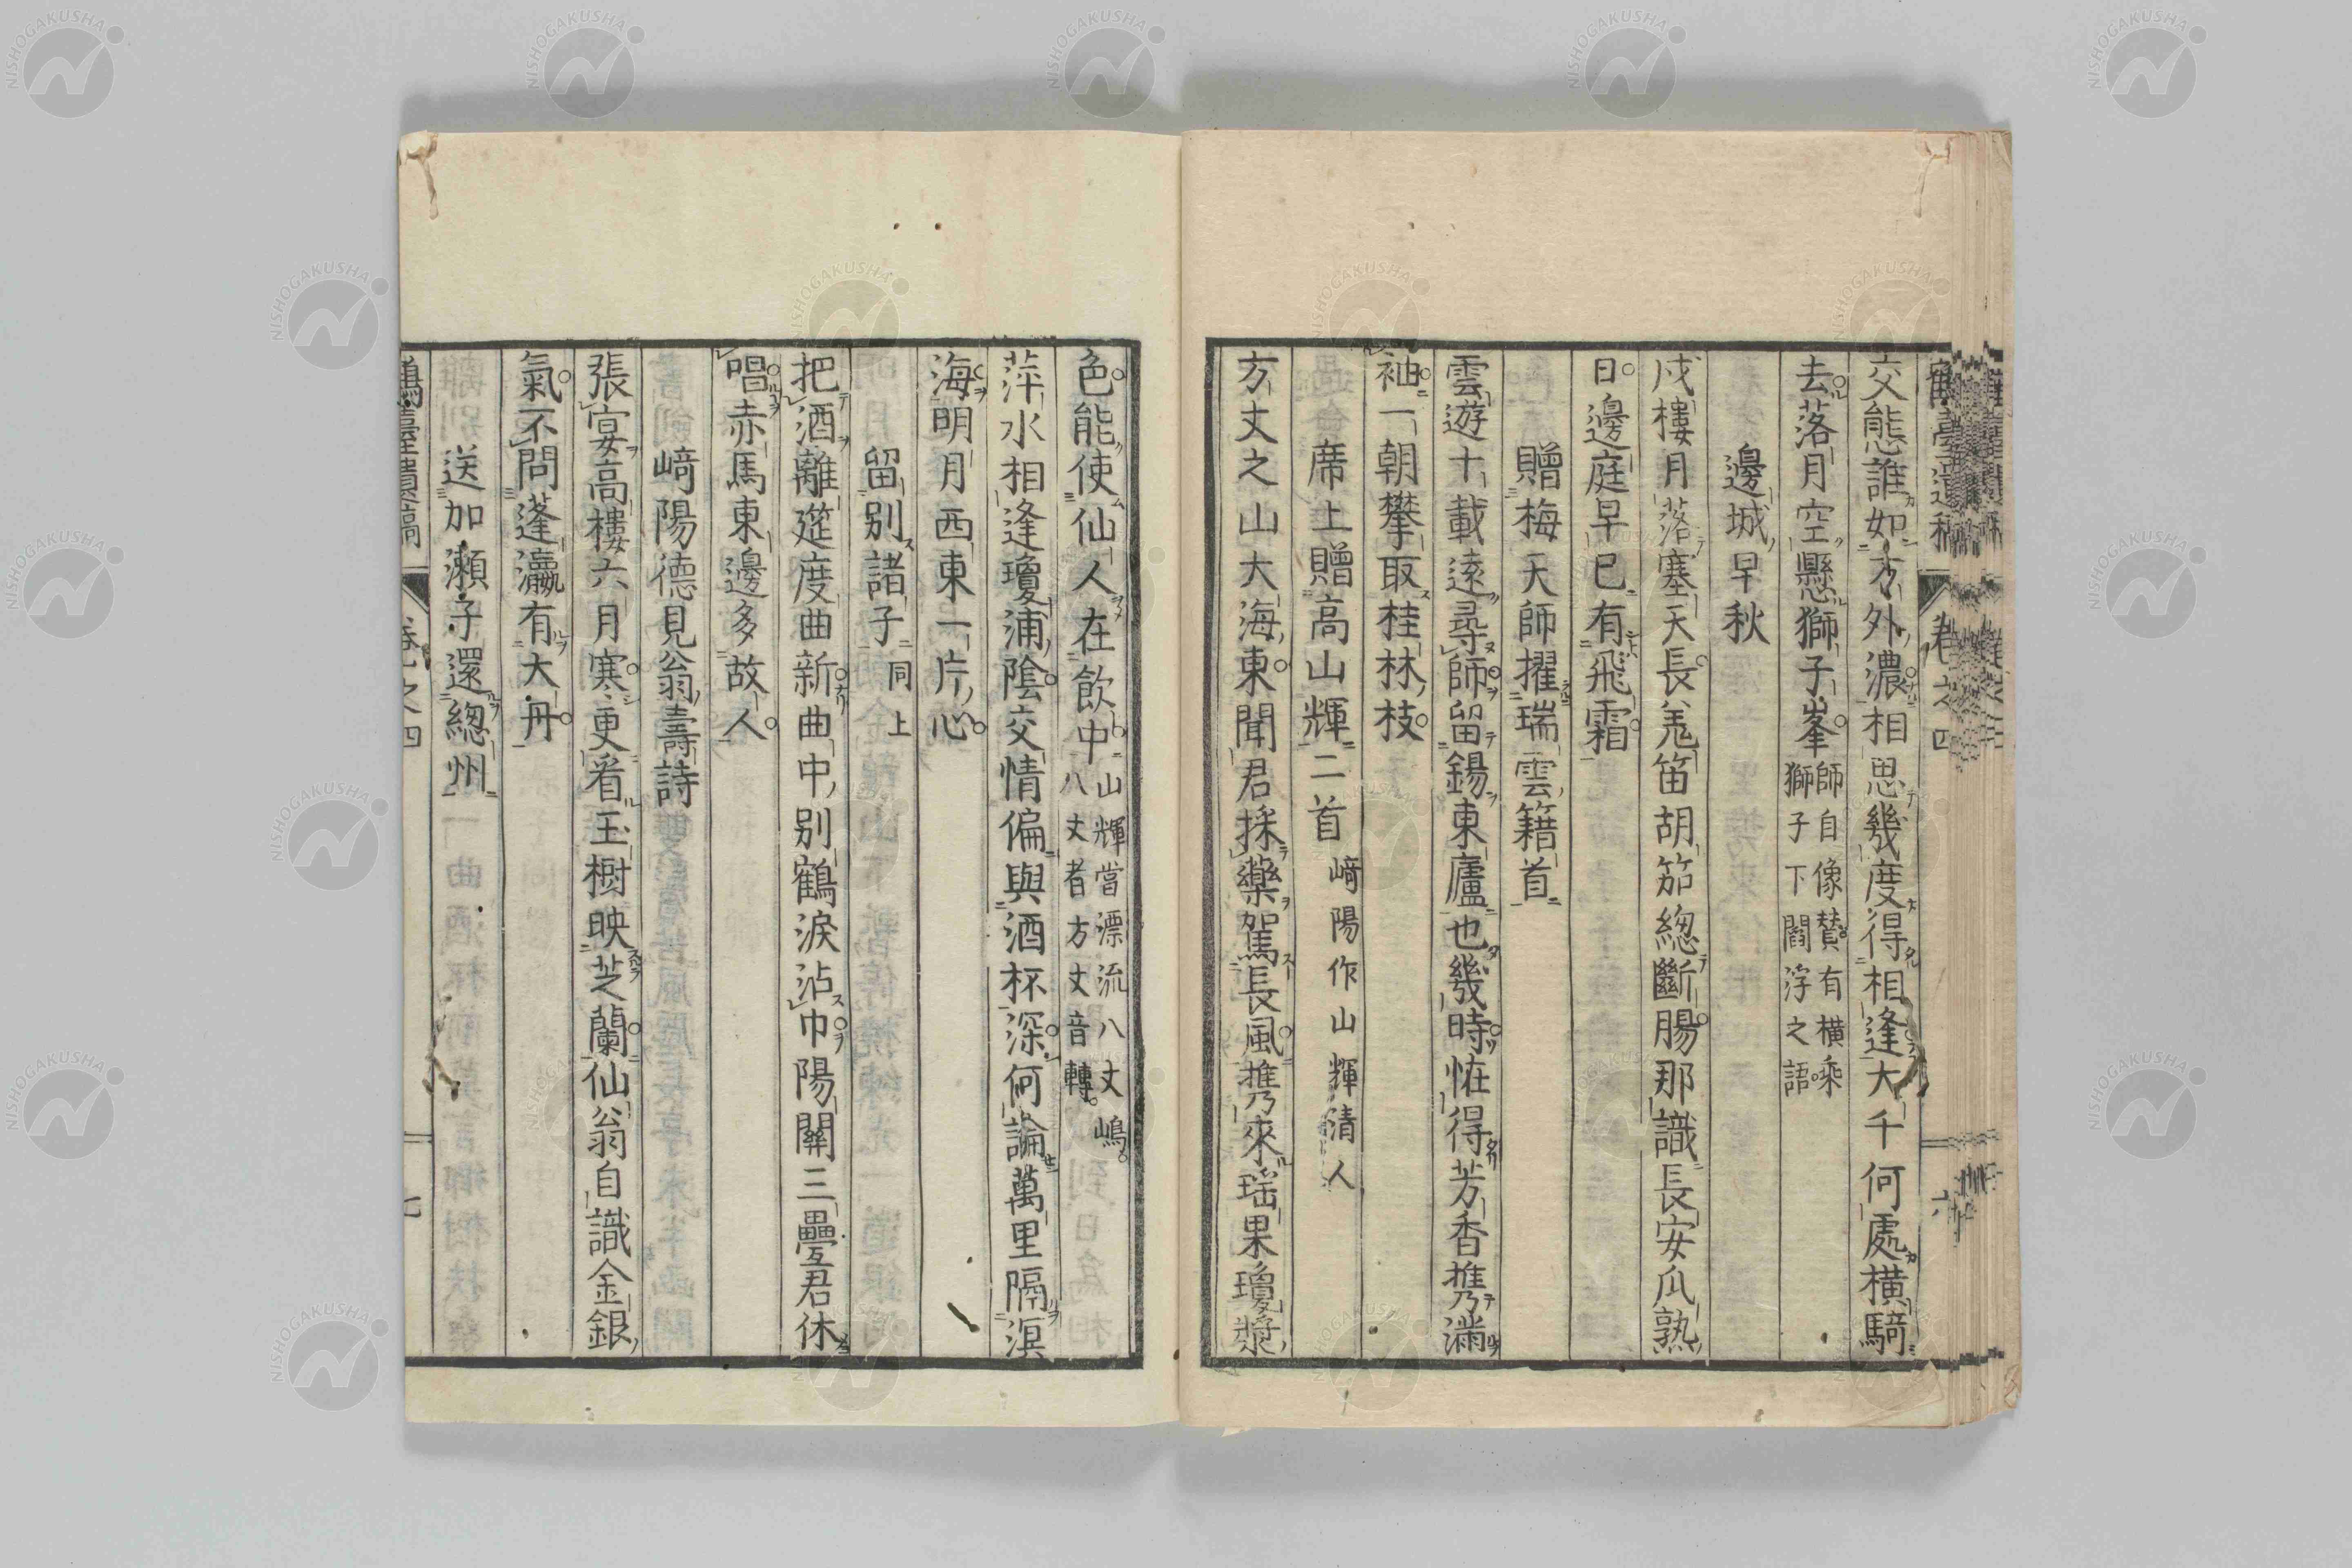 交態誰如方外濃相思幾度得相逢大千何處橫騎
去落月空懸獅子峯師自像賛有橫乘
獅子下閻浮之語
邊城早秋
戍樓月落塞天長羗笛胡笳緫斷腸那識長安瓜熟
日邊庭早已有飛霜
贈梅天師擢瑞雲籍首
雲遊十載遠尋師留錫東廬也幾時恠得芳香携滿
袖一朝攀取桂林枝
席上贈高山輝二首﨑陽作山輝清人
方丈之山大海東聞君採藥駕長風携來瑶果瓊漿
色能使仙人在飲中山輝當漂流八丈嶋
八丈者方丈音轉
萍水相逢瓊浦陰交情偏與酒杯深何論萬里隔溟
海明月西東一片心
留別諸子同上
把酒離筵度曲新曲中別鶴淚沾巾陽關三疊君休
唱赤馬東邊多故人
﨑陽德見翁壽詩
張宴高樓六月寒更看玉樹映芝蘭仙翁自識金銀
氣不問蓬瀛有大丹
送加瀬子還緫州
卷之四
七
NISHOGAKUSHA